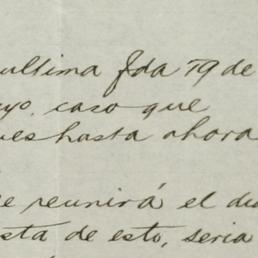 ultima fda 19 de
yo. caso que
ues hasta ahora
e reunirá el dia
sta de esto, seria